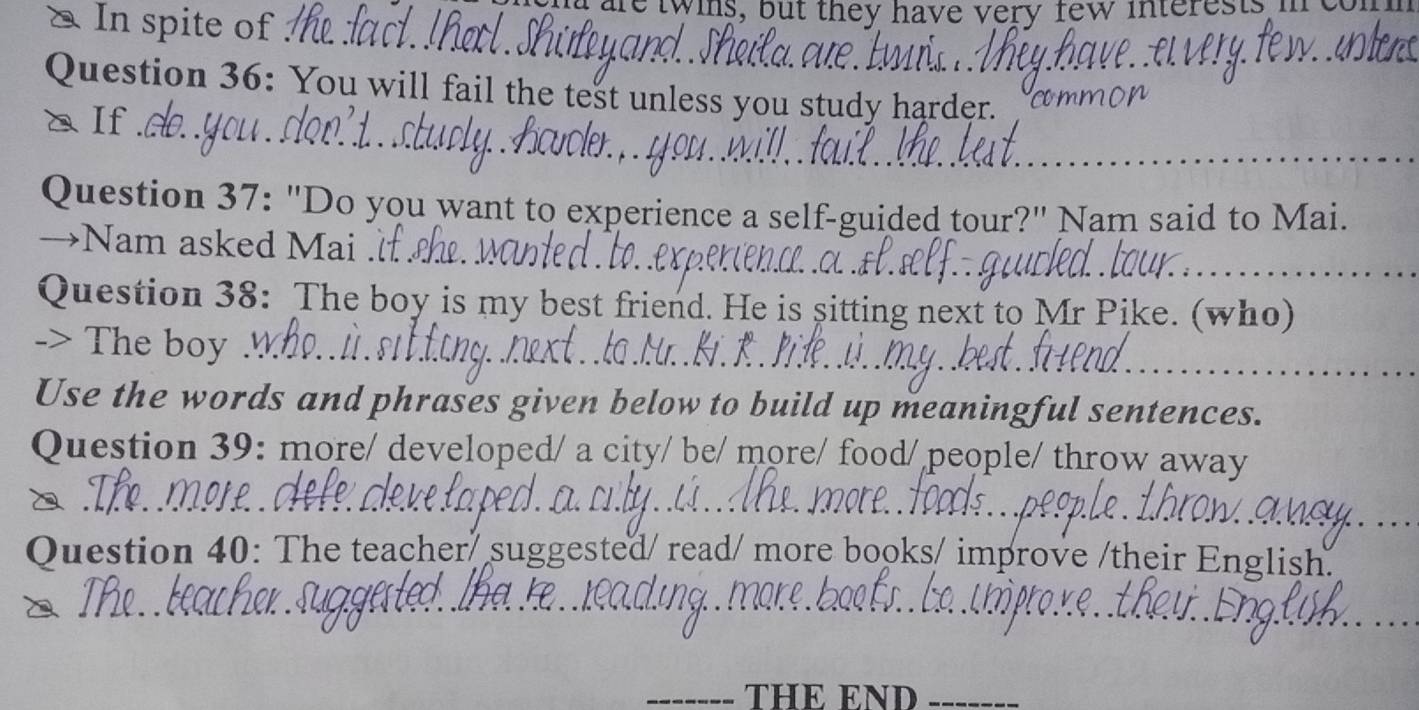 are twins, but they have very few interests in
In spite of the fact that Shirley and Sheila are twins, they have very few
Question 36: You will fail the test unless you study harder. common
If do you don't study harder, you will fail the test
Question 37: "Do you want to experience a self-guided tour?" Nam said to Mai.
→Nam asked Mai if she wanted to experience a self-guided tour.
Question 38: The boy is my best friend. He is sitting next to Mr Pike. (who)
-> The boy who is sitting next to Mr. Pike is my best friend
Use the words and phrases given below to build up meaningful sentences.
Question 39: more/ developed/ a city/ be/ more/ food/ people/ throw away
The more developed a city is the more foods people throw away
Question 40: The teacher/ suggested/ read/ more books/ improve /their English.
The teacher suggested reading more books to improve their English
------- THE END -------